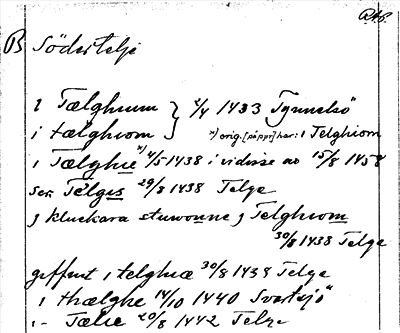 B Södertelje
i Tælghium } 2/4 1433 Tynnelsö
i tælghiom } x) orig. [papp] har: i Telghiom
i Tælghie x) 4/5 1438 i vidisse av 15/8 1458
ser Telgis 29/3 1438 Telge
j kluckara stuwonne j Telghiom
30/8 1438 Telge
giffuit i telghiæ 30/8 1438 Telge
i thælghe 14/10 1440 Svartsjö
i - Tælie 20/8 1442 Telge